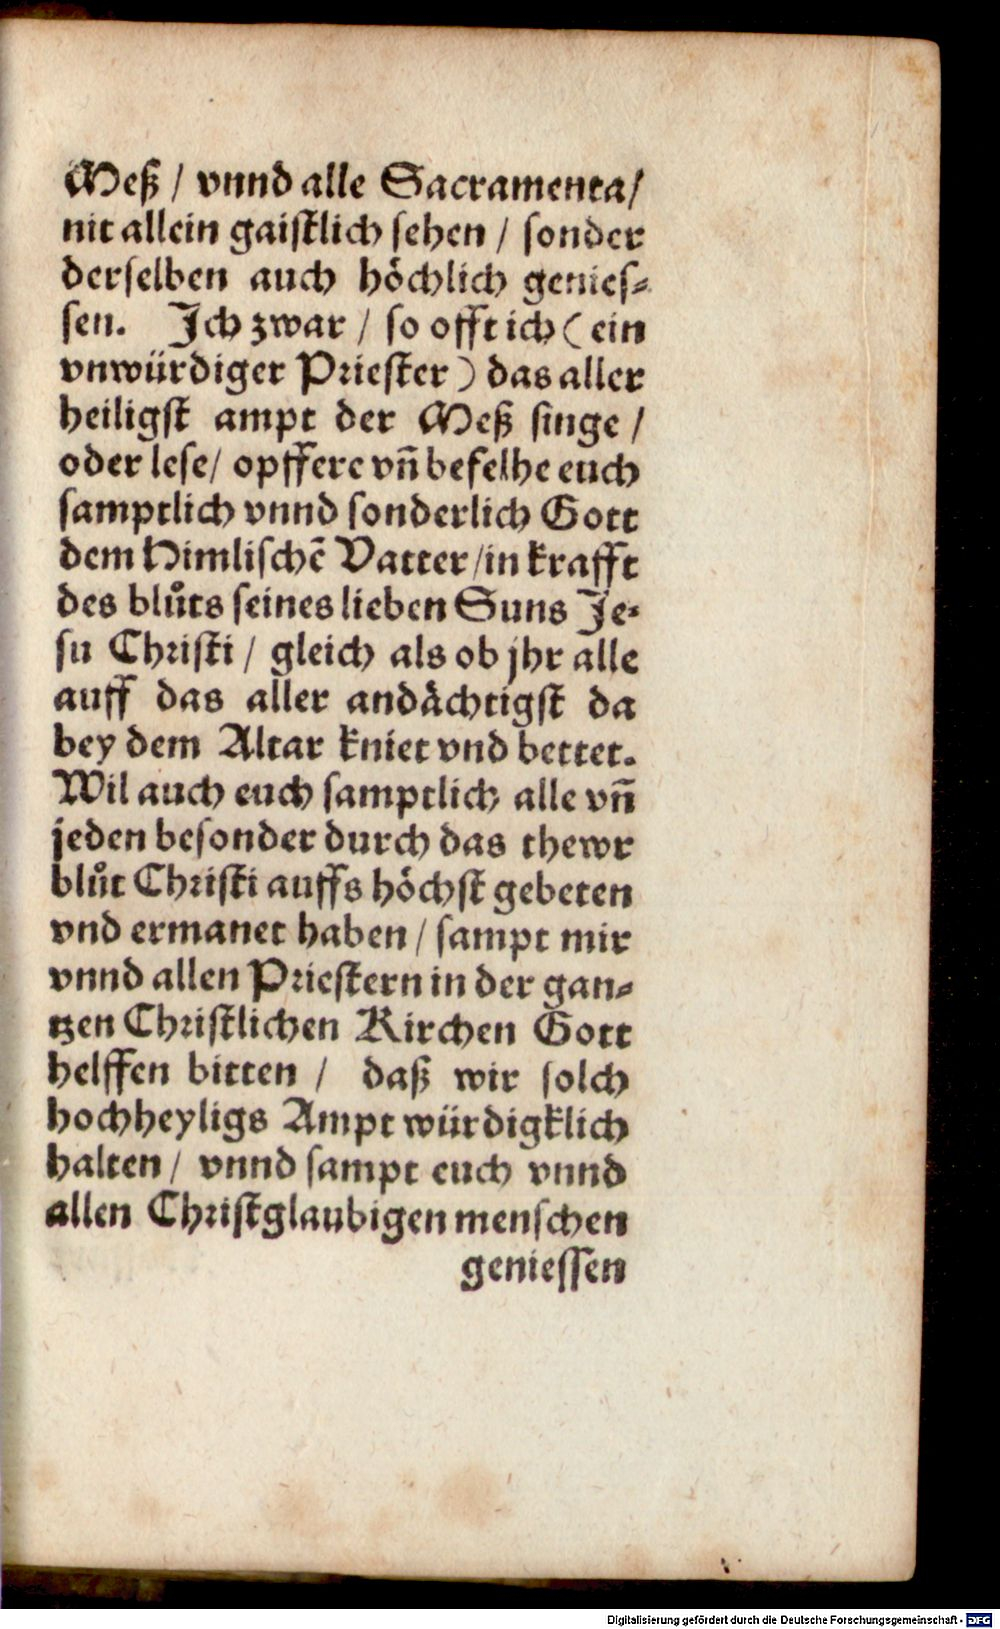 Meß / vnnd alle Sacramenta /
nit allein gaistlich sehen / sonder
derselben auch höchlich genies-
sen. Ich zwar / so offt ich ( ein
vnwürdiger Priester ) das aller
heiligst ampt der Meß singe /
oder lese / opffere vn̄ befelhe euch
samptlich vnnd sonderlich Gott
dem Himlischē Vatter / in krafft
des blůts seines lieben Suns Je-
su Christi / gleich als ob jhr alle
auff das aller andächtigst da
bey dem Altar kniet vnd bettet.
Wil auch euch samptlich alle vn̄
jeden besonder durch das thewr
blůt Christi auffs höchst gebeten
vnd ermanet haben / sampt mir
vnnd allen Priestern in der gan-
tzen Christlichen Kirchen Gott
helffen bitten / daß wir solch
hochheyligs Ampt würdigklich
halten / vnnd sampt euch vnnd
allen Christglaubigen menschen
geniessen
Digitalisierung gefördert durch die Deutsche Forschungsgemeinschaft - DFG